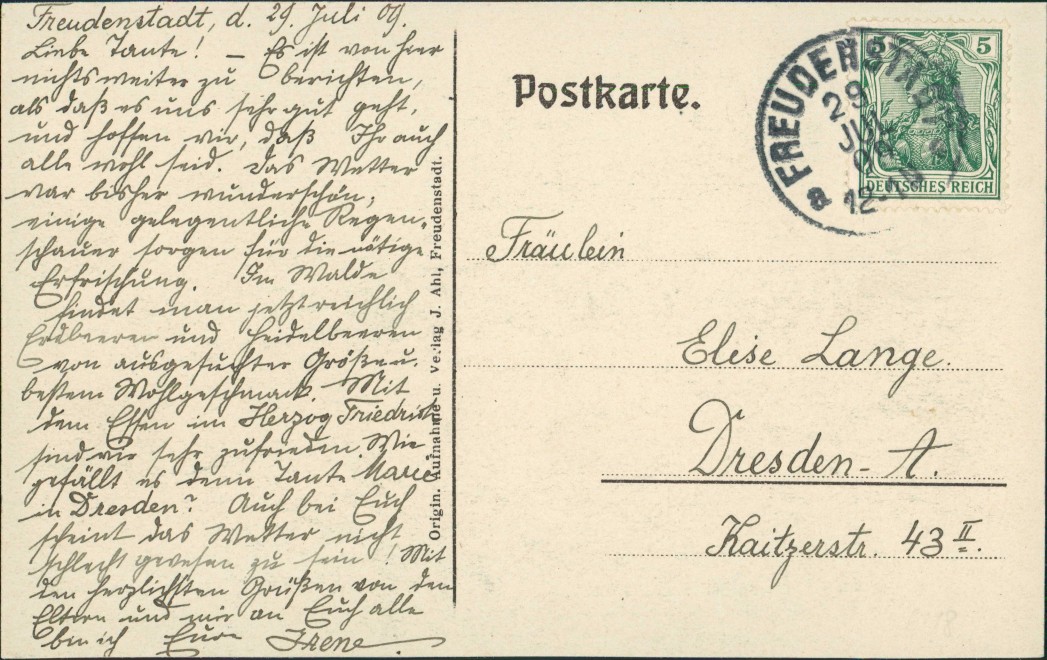 Freudenstadt, d. 29. Juli 09.
Liebe Tante! – Es ist von hier
nichts weiter zu berichten,
als daß es uns sehr gut geht,
und hoffen wir, daß Ihr auch
alle wohl seid. Das Wetter
war bisher wunderschön,
einige gelegentliche Regen-
schauer sorgen für die nötige
Erfrischung. Im Walde
findet man jetzt reichlich
Erdbeeren und Heidelbeeren
von ausgesuchter Größe u.
bestem Wohlgeschmack. Mit
dem Essen im Herzog Friedrich
sind wir sehr zufrieden. Wie
gefällt es denn Tante Marie
in Dresden? Auch bei Euch
scheint das Wetter nicht
schlecht gewesen zu sein! Mit
den herzlichsten Grüßen von den
Eltern und mir an Euch alle
bin ich Eure Irene.
Origin. Aufnahme u. Verlag J. Ahl, Freudenstadt.
Postkarte.
FREUDENSTADT
29
JUL
09
12-1N
a
5 5
DEUTSCHES REICH
Fräulein
Elise Lange.
Dresden-A.
Kaitzerstr. 43 II.
18